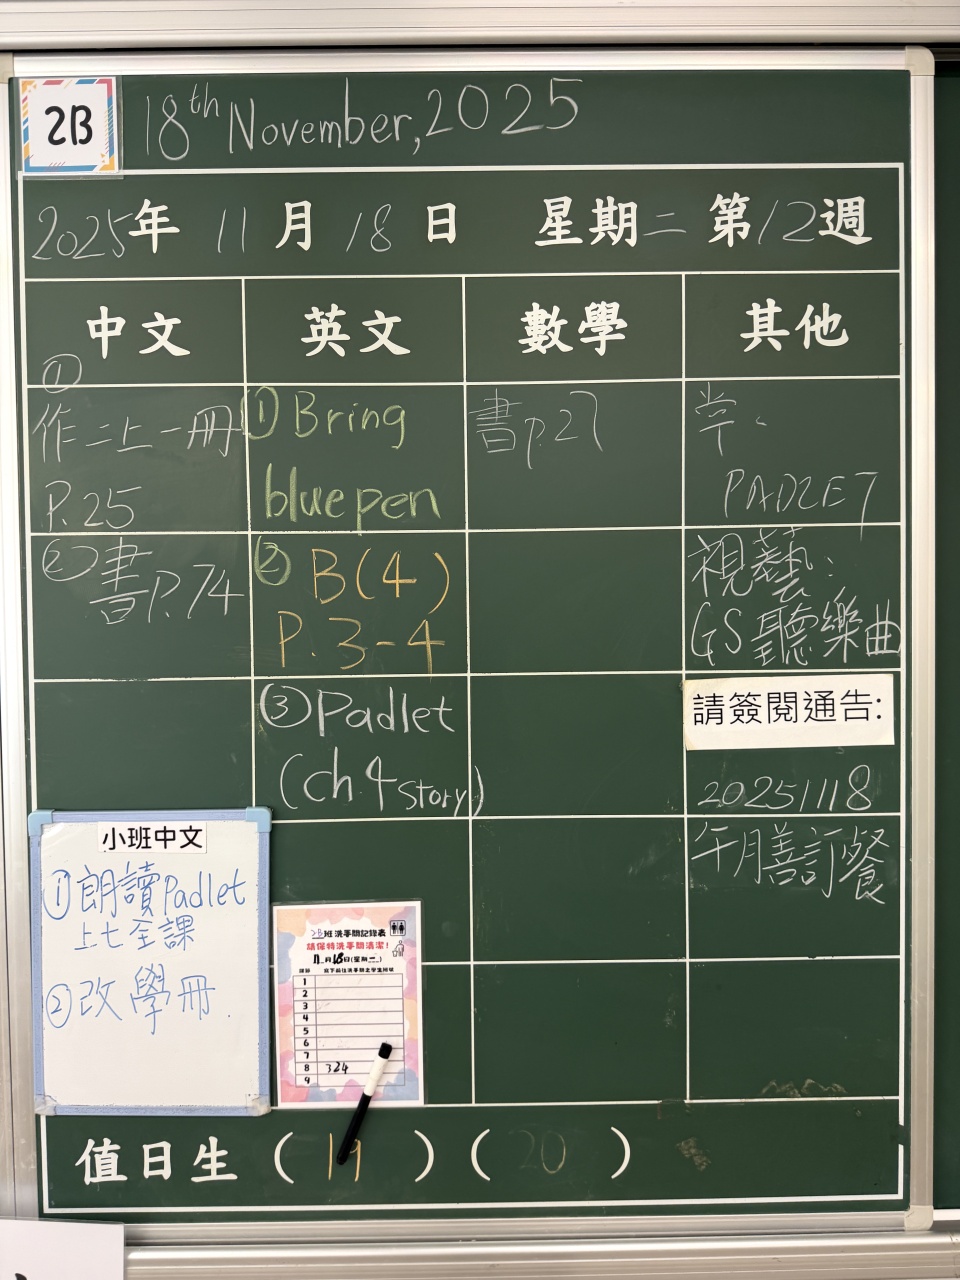 2B
18th November, 2025
2025年 11月 18日 星期二 第12週
中文 英文 數學 其他
①
作二上一冊
P.25
② 書P.74
① Bring
blue pen
② B(4)
P.3-4
③ Padlet
(ch.4 story)
書p.27
PADLET
視藝：
GS聽樂曲
請簽閱通告:
20251118
午膳訂餐
小班中文
① 朗讀Padlet
上七全課
② 改學冊.
2B班洗手間記錄表
請保持洗手間清潔!
11月18日(星期二)
1
2
3
4
5
6
7
8 324
9
值日生 ( 19 ) ( 20 )